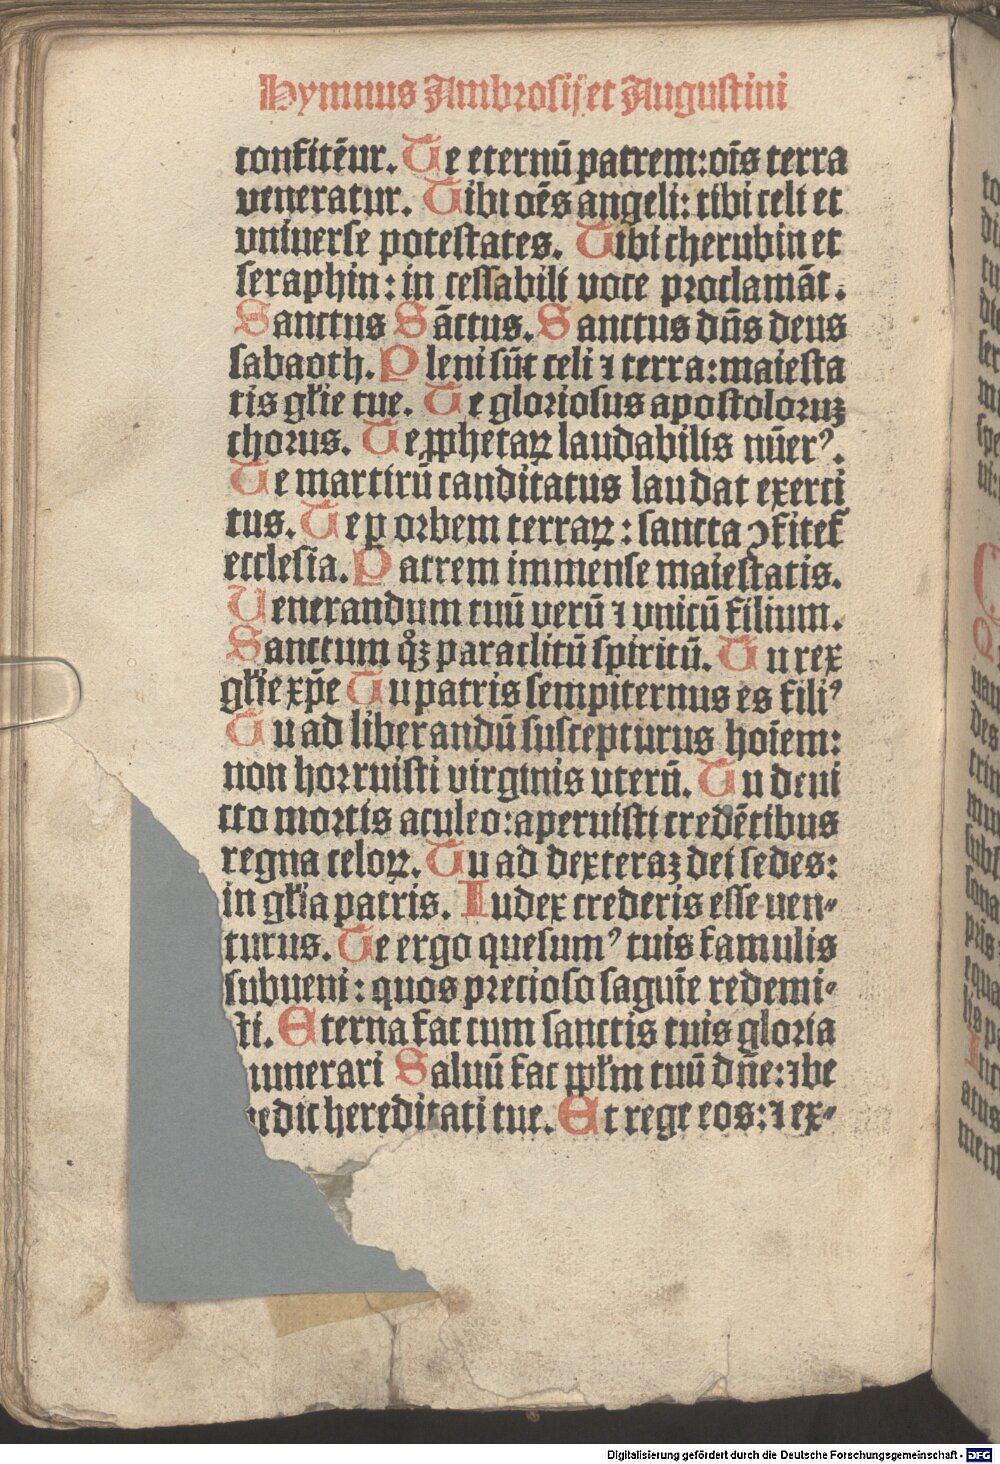 Hymnus Ambrosij et Augustini
confitēur. Te eternū patrem: oīs terra
veneratur. Tibi oēs angeli: tibi celi et
vniuerse potestates. Tibi cherubin et
seraphin: in cessabili voce proclamāt.
Sanctus Sāctus. Sanctus dn̄s deus
sabaoth. Pleni sūt celi ⁊ terra: maiesta
tis gl̄ie tue. Te gloriosus apostoloruꝫ
chorus. Te ꝓphetaꝝ laudabilis nūerꝰ.
Te martirū candidatus laudat exerci
tus. Te ꝑ orbem terraꝝ: sancta ꝯfitet᷑
ecclesia. Patrem immense maiestatis.
Uenerandum tuū verū ⁊ vnicū filium.
Sanctum qͦꝫ paraclitū spiritū. Tu rex
gl̄ie xp̄e Tu patris sempiternus es filiꝰ
Tu ad liberandū suscepturus hoīem:
non horruisti virginis vterū. Tu deui
cto mortis aculeo: aperuisti credētibus
regna celoꝝ. Tu ad dexteraꝫ dei sedes:
in gl̄ia patris. Iudex crederis esse uen⸗
turus. Te ergo quesumꝰ tuis famulis
subueni: quos precioso saguīe redemi⸗
sti. Eterna fac cum sanctis tuis gloria
munerari Saluū fac ꝓpl̄m tuū dn̄e: ⁊ be
nedic hereditati tue. Et rege eos: ⁊ ex⸗
Digitalisierung gefördert durch die Deutsche Forschungsgemeinschaft - DFG